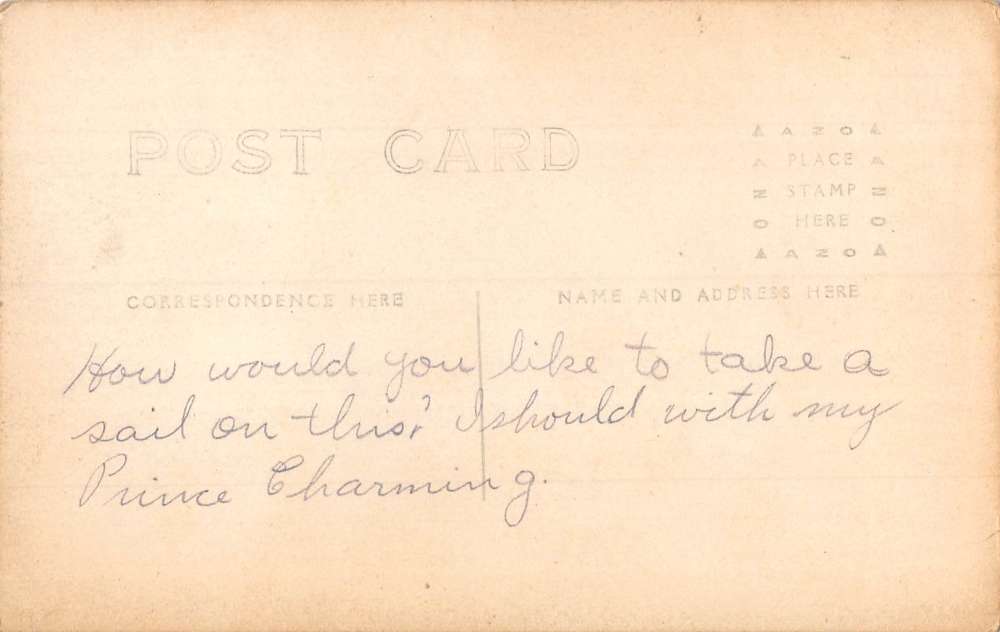 POST CARD
▲ AZO ▲
▲ PLACE ▲
N STAMP N
O HERE O
▲ AZO ▲
CORRESPONDENCE HERE
NAME AND ADDRESS HERE
How would you like to take a
sail on this? I should with my
Prince Charming.